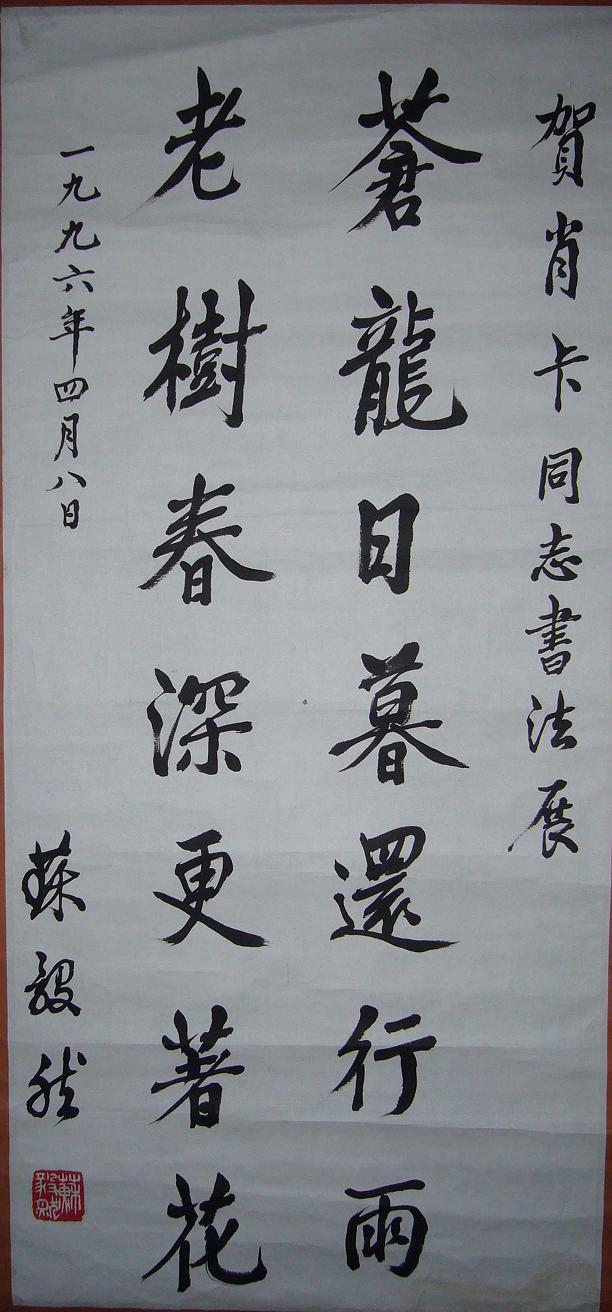 賀肖卡同志書法展
蒼龍日暮還行雨
老樹春深更著花
一九九六年四月八日
蘇毅然
蘇毅然